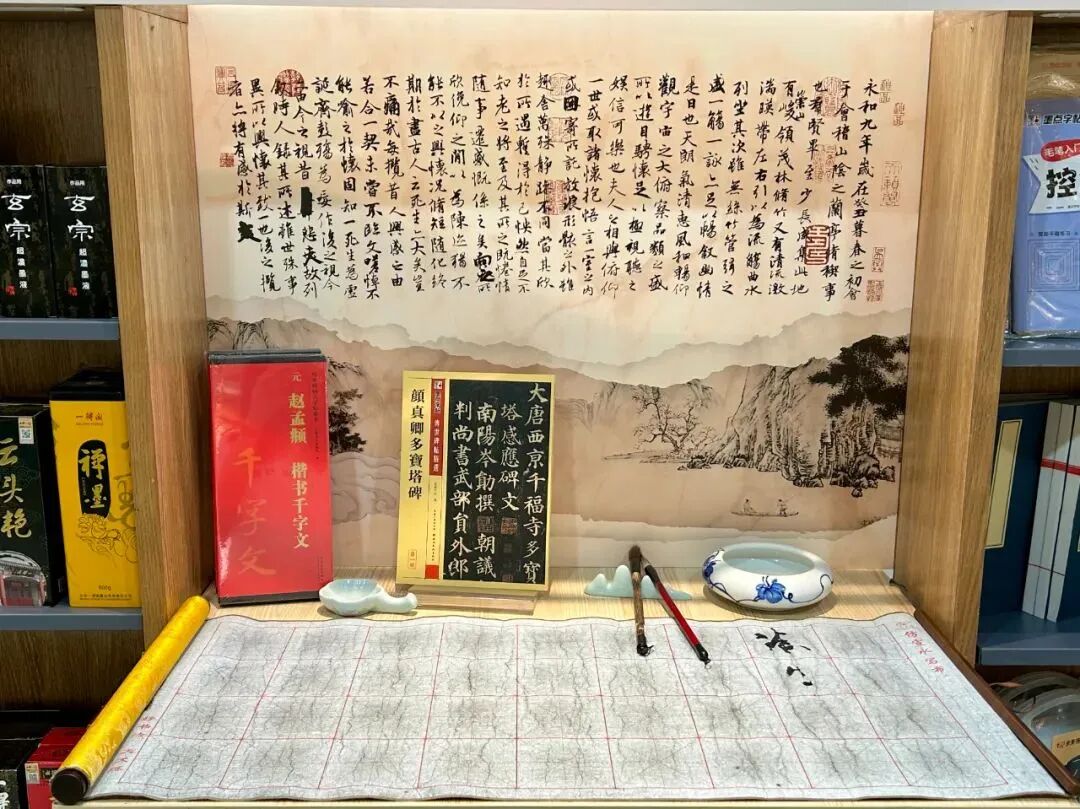 永和九年歲在癸丑暮春之初會
于會稽山陰之蘭亭脩稧事
也羣賢畢至少長咸集此地
有崇山峻領茂林脩竹又有清流激
湍暎帶左右引以為流觴曲水
列坐其次雖無絲竹管弦之
盛一觴一詠亦足以暢敘幽情
是日也天朗氣清惠風和暢仰
觀宇宙之大俯察品類之盛
所以遊目騁懷足以極視聽之
娛信可樂也夫人之相與俯仰
一世或取諸懷抱悟言一室之內
或因寄所託放浪形骸之外雖
趣舍萬殊靜躁不同當其欣
於所遇暫得於己怏然自足不
知老之將至及其所之既惓情
隨事遷感慨係之矣向之所
欣俛仰之閒以為陳迹猶不
能不以之興懷況脩短隨化終
期於盡古人云死生亦大矣豈
不痛哉每攬昔人興感之由
若合一契未嘗不臨文嗟悼不
能喻之於懷固知一死生為虛
誕齊彭殤為妄作後之視今
亦由今之視昔悲夫故列
敘時人錄其所述雖世殊事
異所以興懷其致一也後之攬
者亦將有感於斯文
玄宗
超濃墨液
玄宗
超濃墨液
云头艳
一得阁
禅墨
500g
元
赵孟頫 楷书千字文
千字文
顔真卿多寶塔碑
大唐西京千福寺多寶
塔感應碑文
南陽岑勛撰朝議
判尚書武部員外郎
墨点字帖
毛笔入门
控
仿宣水写布